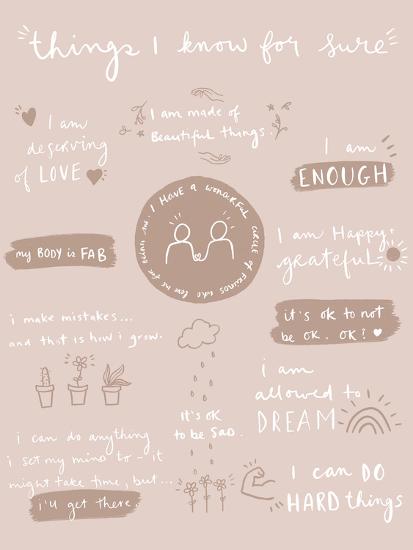 "things I know for sure"
I am
deserving
of LOVE
I am made of
Beautiful things.
I am
ENOUGH
I HAVE A WONDERFUL CIRCLE OF FRIENDS who love me for being me.
my BODY is FAB
I am Happy
grateful
i make mistakes...
and that is how i grow.
it's ok to not
be ok. OK?
it's ok
to be SAD.
i am
allowed to
DREAM
i can do anything
i set my mind to - it
might take time, but...
i'll get there.
I can DO
HARD things